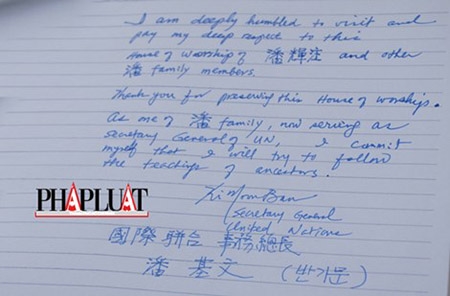 I am deeply humbled to visit and
pay my deep respect to this
House of Worship of 潘輝注 and other
潘 family members.
Thank you for preserving this House of worships.
As me of 潘 family, now serving as
secretary General of UN, I commit
myself that I will try to follow
the teachings of ancestors.
Ki Moon Ban
Secretary General
United Nations
國際聯合 事務總長
潘基文 (반기문)
PHAPLUAT